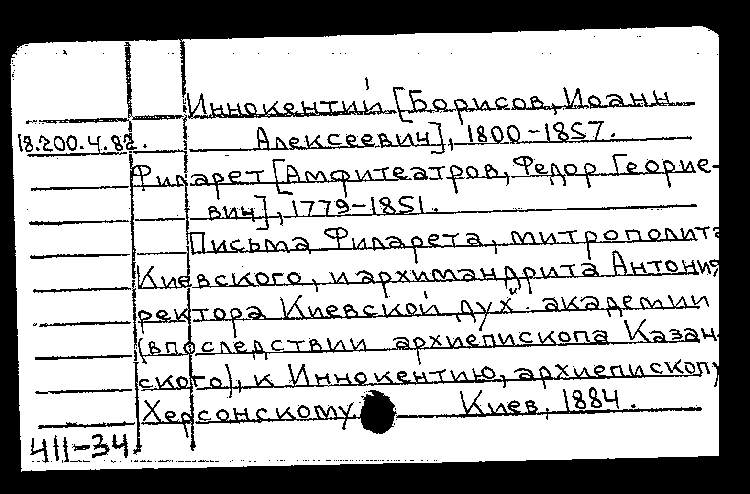 Иннокентий [Борисов, Иоанн
18.200.4.82. Алексеевич], 1800-1857.
Филарет [Амфитеатров, Федор Георгие-
вич], 1779-1851.
Письма Филарета, митрополита
Киевского, и архимандрита Антония
ректора Киевской дух. академии
(впоследствии архиепископа Казан-
ского), к Иннокентию, архиепископу
Херсонскому Киев, 1884.
411-34